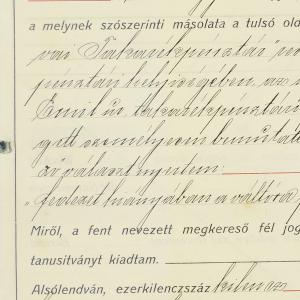 a melynek szószerinti másolata a tulsó old
vai Takarékpénztár "
pénztári helyiségében, az
Emil úr, takarékpénztári
gitt személyem bemutatá
zó választ nyertem:
"fedezet hiányában a váltóra
Miről, a fent nevezett megkereső fél jog
tanusítványt kiadtam.
Alsólendván, ezerkilenczszáz kilencz